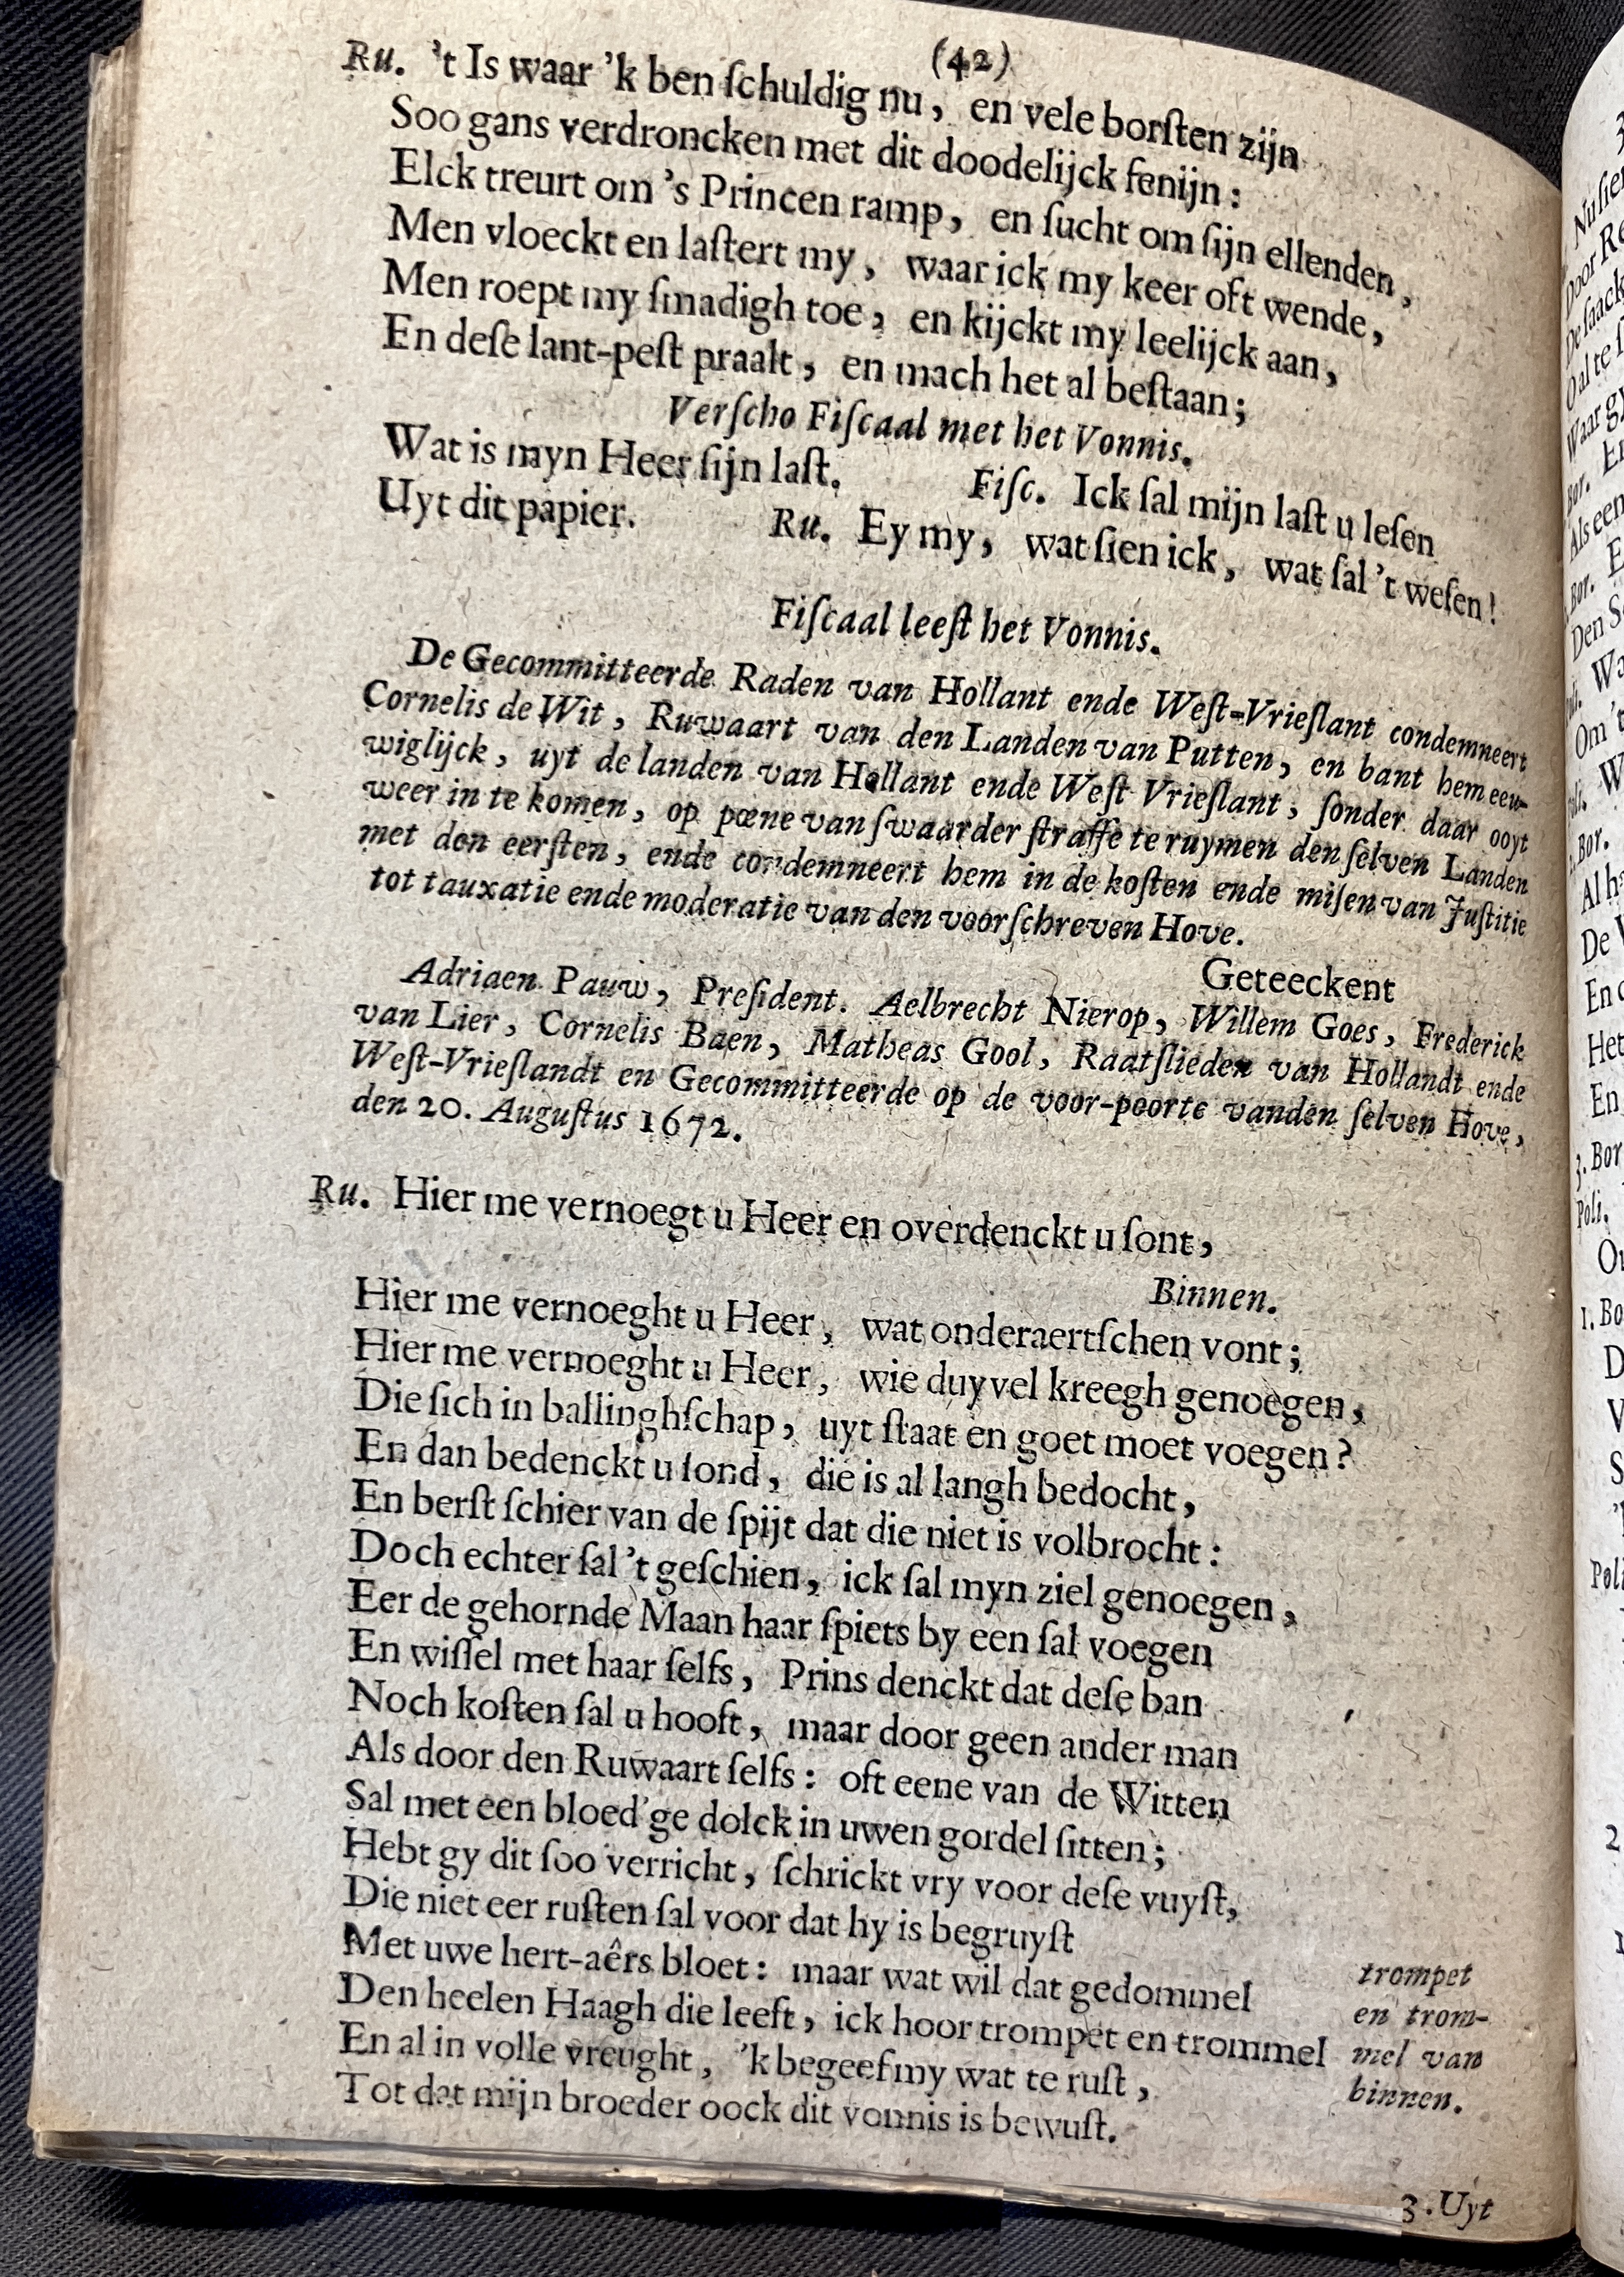 (42)
Ru. 't Is waar 'k ben ſchuldig nu, en vele borſten zijn
Soo gans verdroncken met dit doodelijck fenijn:
Elck treurt om 's Princen ramp, en ſucht om ſijn ellenden,
Men vloeckt en laſtert my, waar ick my keer oft wende,
Men roept my ſmadigh toe, en kijckt my leelijck aan,
En deſe lant-peſt praalt, en mach het al beſtaan;
Verſcho Fiſcaal met het Vonnis.
Wat is myn Heer ſijn laſt. Fiſc. Ick ſal mijn laſt u leſen
Uyt dit papier. Ru. Ey my, wat ſien ick, wat ſal 't weſen!
Fiſcaal leeſt het Vonnis.
De Gecommitteerde Raden van Hollant ende Weſt-Vrieſlant condemneert
Cornelis de Wit, Ruwaart van den Landen van Putten, en bant hem eeu-
wiglijck, uyt de landen van Hollant ende Weſt Vrieſlant, ſonder daar ooyt
weer in te komen, op pœne van ſwaarder ſtraffe te ruymen den ſelven Landen
met den eerſten, ende condemneert hem in de koſten ende miſen van Juſtitie
tot tauxatie ende moderatie van den voorſchreven Hove.
Geteeckent
Adriaen Pauw, Preſident. Aelbrecht Nierop, Willem Goes, Frederick
van Lier, Cornelis Baen, Matheas Gool, Raatſlieden van Hollandt ende
Weſt-Vrieſlandt en Gecommitteerde op de voor-poorte vanden ſelven Hove,
den 20. Auguſtus 1672.
Ru. Hier me vernoegt u Heer en overdenckt u ſont,
Binnen.
Hier me vernoeght u Heer, wat onderaertſchen vont;
Hier me vernoeght u Heer, wie duyvel kreegh genoegen,
Die ſich in ballinghſchap, uyt ſtaat en goet moet voegen?
En dan bedenckt u ſond, die is al langh bedocht,
En berſt ſchier van de ſpijt dat die niet is volbrocht:
Doch echter ſal 't geſchien, ick ſal myn ziel genoegen,
Eer de gehornde Maan haar ſpiets by een ſal voegen
En wiſſel met haar ſelfs, Prins denckt dat deſe ban
Noch koſten ſal u hooft, maar door geen ander man
Als door den Ruwaart ſelfs: oft eene van de Witten
Sal met een bloed'ge dolck in uwen gordel ſitten;
Hebt gy dit ſoo verricht, ſchrickt vry voor deſe vuyſt,
Die niet eer ruſten ſal voor dat hy is begruyſt
Met uwe hert-aêrs bloet: maar wat wil dat gedommel
Den heelen Haagh die leeft, ick hoor trompet en trommel
En al in volle vreught, 'k begeef my wat te ruſt,
Tot dat mijn broeder oock dit vonnis is bewuſt.
trompet
en trom-
mel van
binnen.
3. Uyt